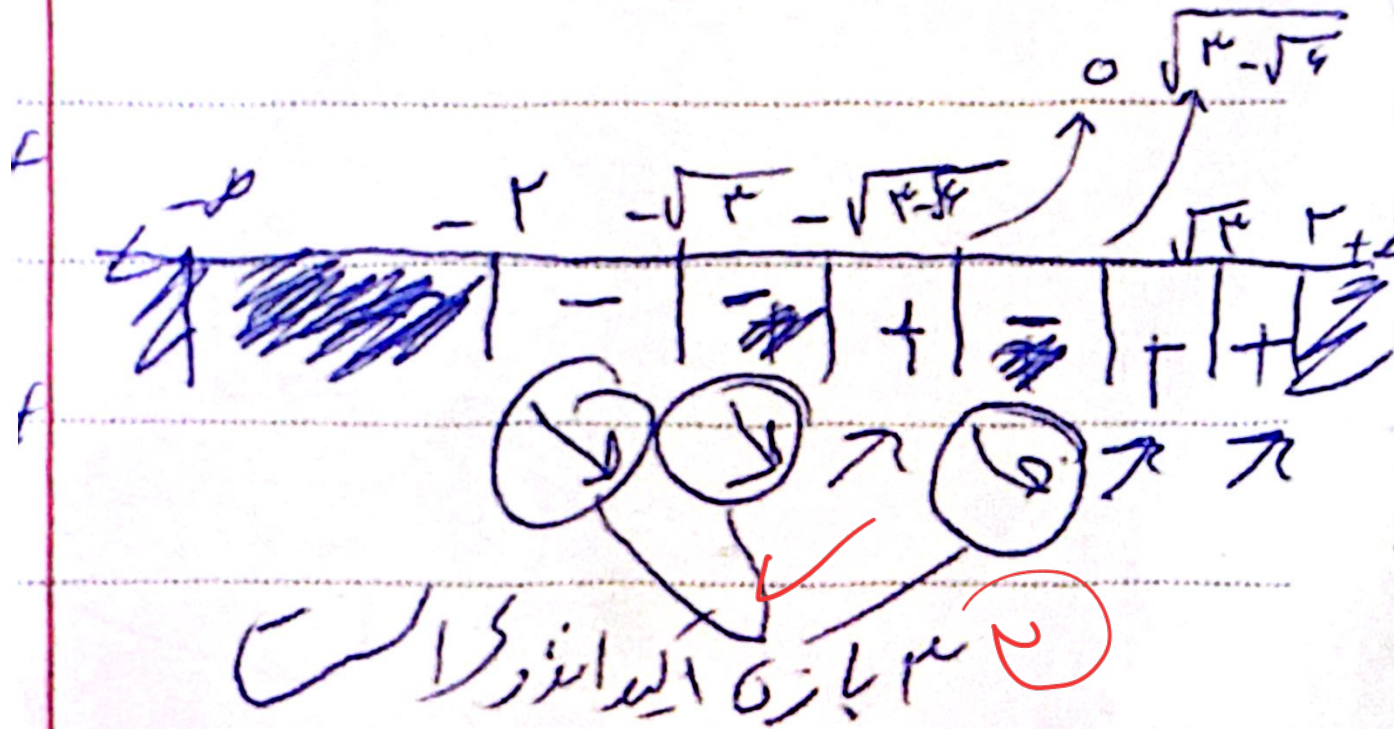 ۰ √(۳-√۶)
-∞ -۲ -√۳ -√(۳-√۶) √۳ ۲ +∞
- - + - + +
↘ ↘ ↗ ↘ ↗ ↗
۳ بازه اکیدا نزولی است